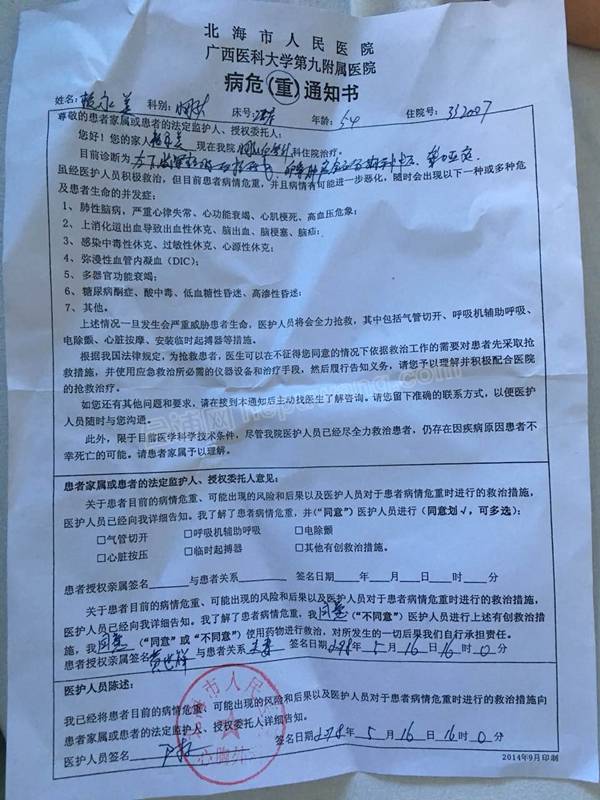 北海市人民医院
广西医科大学第九附属医院
病危（重）通知书
姓名： 科别： 床号： 年龄：54 住院号：312007
尊敬的患者家属或患者的法定监护人、授权委托人：
您好！您的家人 现在我院 科住院治疗。
目前诊断为
虽经医护人员积极救治，但目前患者病情危重，并且病情有可能进一步恶化，随时会出现以下一种或多种危
及患者生命的并发症：
1、肺性脑病，严重心律失常、心功能衰竭、心肌梗死、高血压危象；
2、上消化道出血导致出血性休克、脑出血、脑梗塞、脑疝；
3、感染中毒性休克、过敏性休克、心源性休克；
4、弥漫性血管内凝血（DIC）；
5、多器官功能衰竭；
6、糖尿病酮症、酸中毒、低血糖性昏迷、高渗性昏迷；
7、其他。
上述情况一旦发生会严重威胁患者生命，医护人员将会全力抢救，其中包括气管切开、呼吸机辅助呼吸、
电除颤、心脏按摩、安装临时起搏器等措施。
根据我国法律规定，为抢救患者，医生可以在不征得您同意的情况下依据救治工作的需要对患者先采取抢
救措施，并使用应急救治所必需的仪器设备和治疗手段，然后履行告知义务，请您予以理解并积极配合医院
的抢救治疗。
如您还有其他问题和要求，请在接到本通知后主动找医生了解咨询。请您留下准确的联系方式，以便医护
人员随时与您沟通。
此外，限于目前医学科学技术条件，尽管我院医护人员已经尽全力救治患者，仍存在因疾病原因患者不
幸死亡的可能。请患者家属予以理解。
患者家属或患者的法定监护人、授权委托人意见：
关于患者目前的病情危重、可能出现的风险和后果以及医护人员对于患者病情危重时进行的救治措施，
医护人员已经向我详细告知。我了解了患者病情危重，并（“同意”）医护人员进行（同意划√，可多选）：
□气管切开 □呼吸机辅助呼吸 □电除颤
□心脏按压 □临时起搏器 □其他有创救治措施。
患者授权亲属签名 与患者关系 签名日期 年 月 日 时 分
关于患者目前的病情危重、可能出现的风险和后果以及医护人员对于患者病情危重时进行的救治措施，
医护人员已向我详细告知。我了解了患者病情危重，我同意（“不同意”）医护人员进行上述有创救治措
施，我同意（“同意”或“不同意”）使用药物进行救治，对所发生的一切后果我们自行承担责任。
患者授权亲属签名 与患者关系 签名日期 年5月16日16时0分
医护人员陈述：
我已经将患者目前的病情危重、可能出现的风险和后果以及医护人员对于患者病情危重时进行的救治措施向
患者家属或患者的法定监护人、授权委托人详细告知。
医护人员签名 签名日期 年5月16日16时0分
2014年9月印制